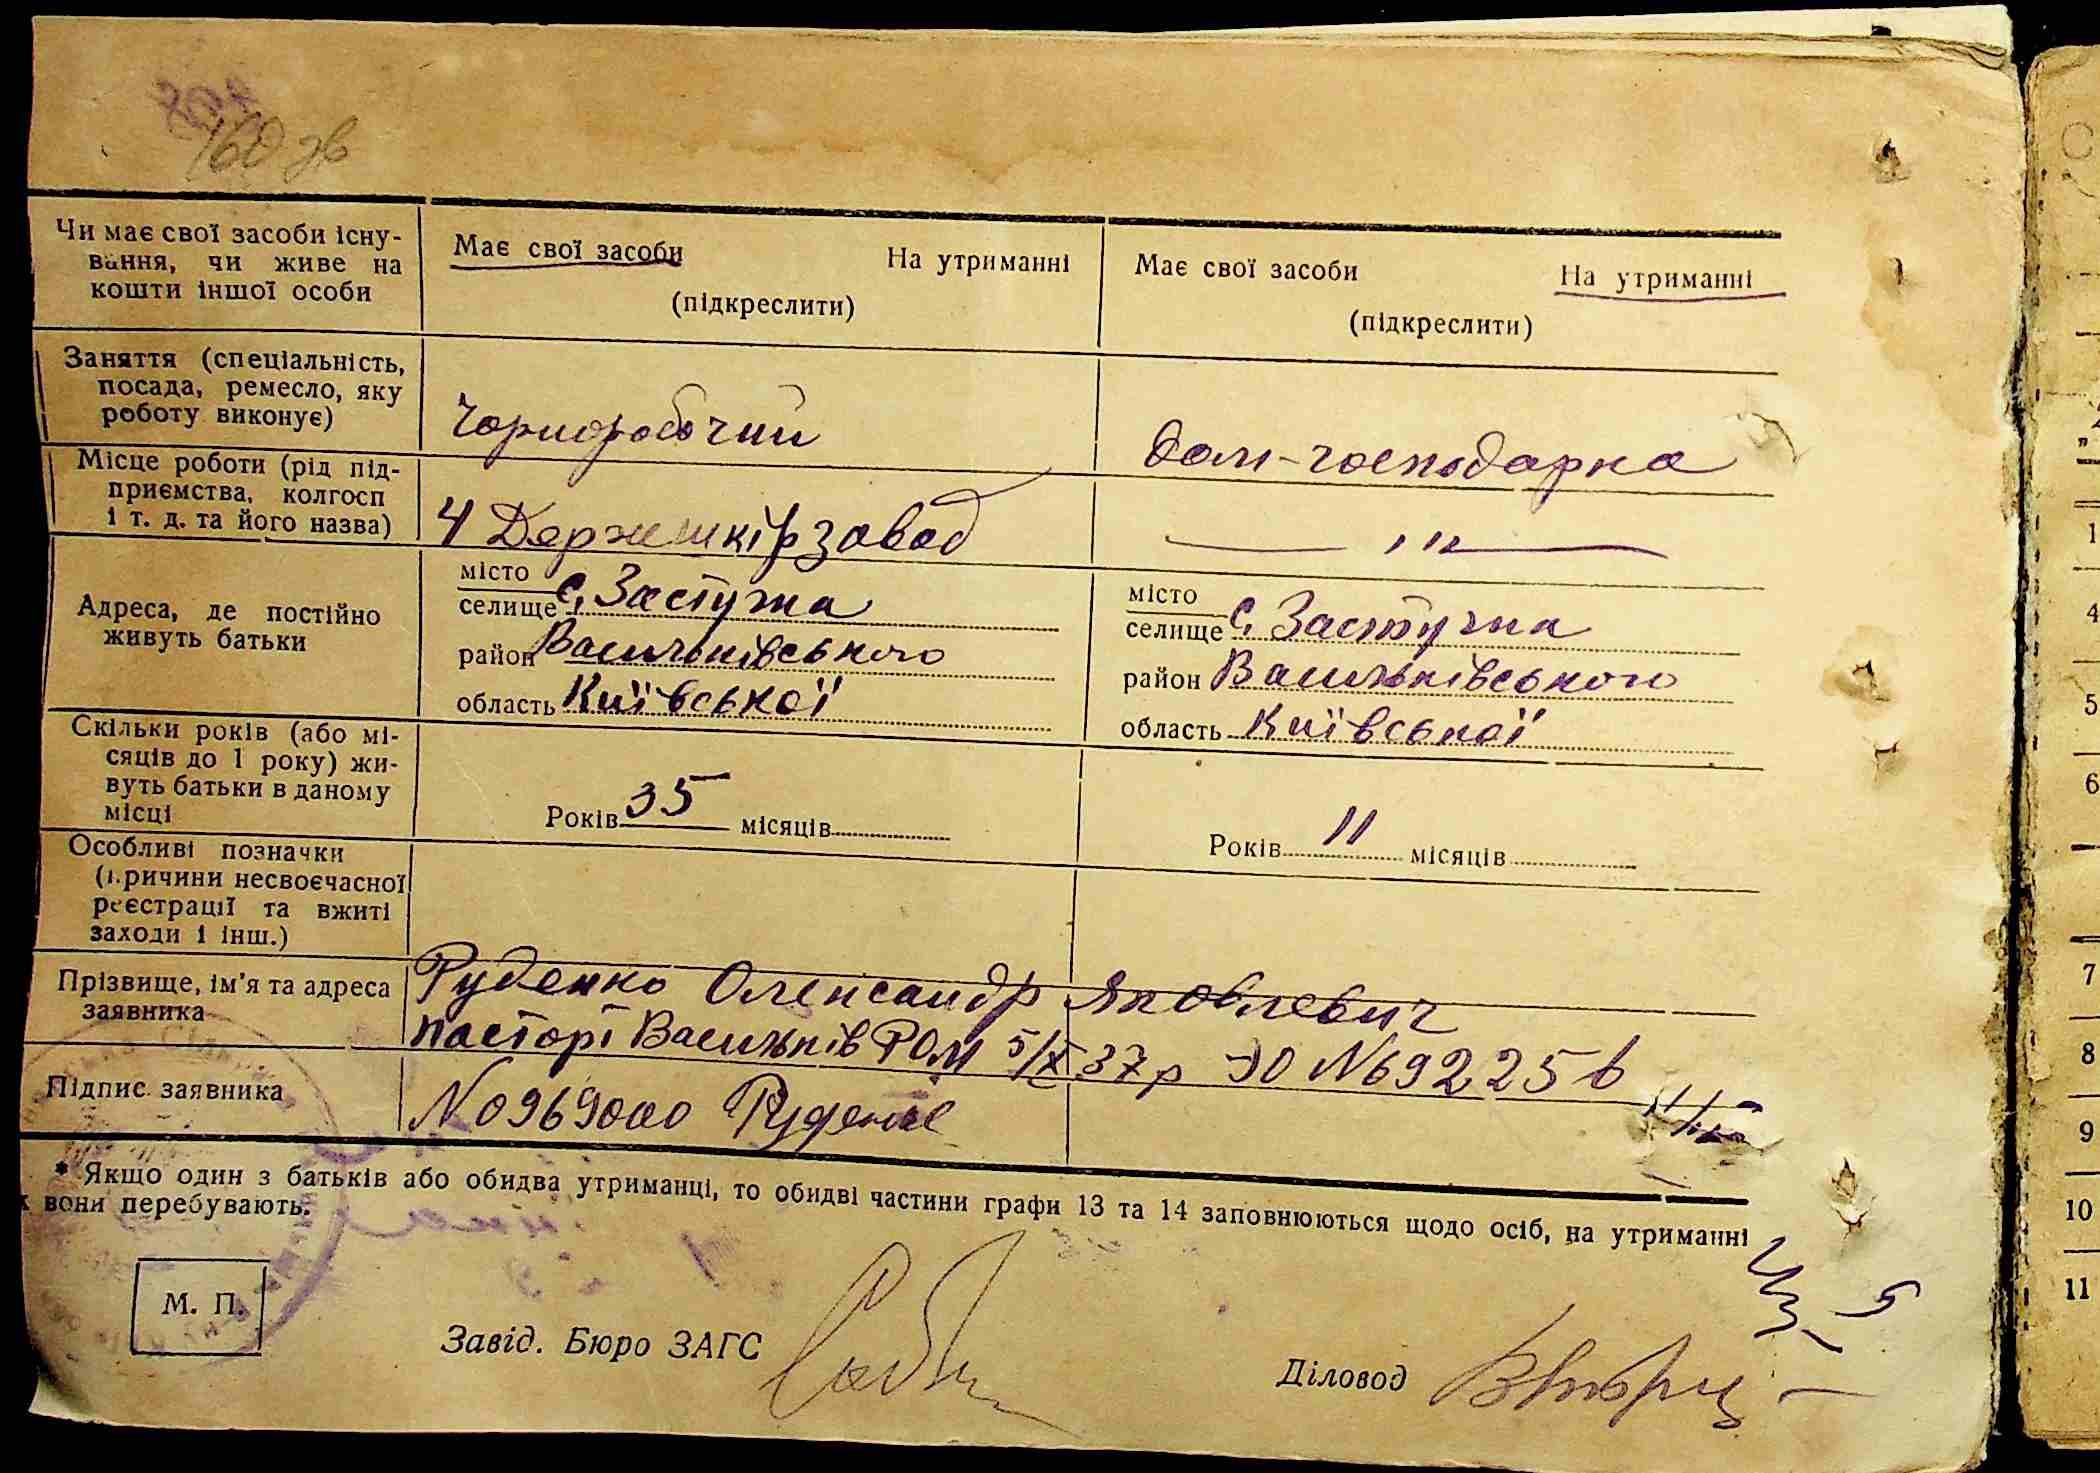 160 зв
Чи має свої засоби існу-
вання, чи живе на
кошти іншої особи
Має свої засоби На утриманні
(підкреслити)
Має свої засоби На утриманні
(підкреслити)
Заняття (спеціальність,
посада, ремесло, яку
роботу виконує)
Чорноробочий
дом-господарка
Місце роботи (рід під-
приємства, колгосп
і т. д. та його назва)
4 Держшкірзавод
— " —
Адреса, де постійно
живуть батьки
місто
селище с. Застугна
район Васильківського
область Київської
місто
селище с. Застугна
район Васильківського
область Київської
Скільки років (або мі-
сяців до 1 року) жи-
вуть батьки в даному
місці
Років 35 місяців
Років 11 місяців
Особливі позначки
(причини несвоєчасної
реєстрації та вжиті
заходи і інш.)
Прізвище, ім'я та адреса
заявника
Руденко Олександр Яковлевич
паспорт Васильків РОМ 5/X 37р ЭО №692256
Підпис заявника
№0969000 Руденко
* Якщо один з батьків або обидва утриманці, то обидві частини графи 13 та 14 заповнюються щодо осіб, на утриманні
х вони перебувають.
М. П.
Завід. Бюро ЗАГС
Діловод
1
4
5
6
7
8
9
10
11